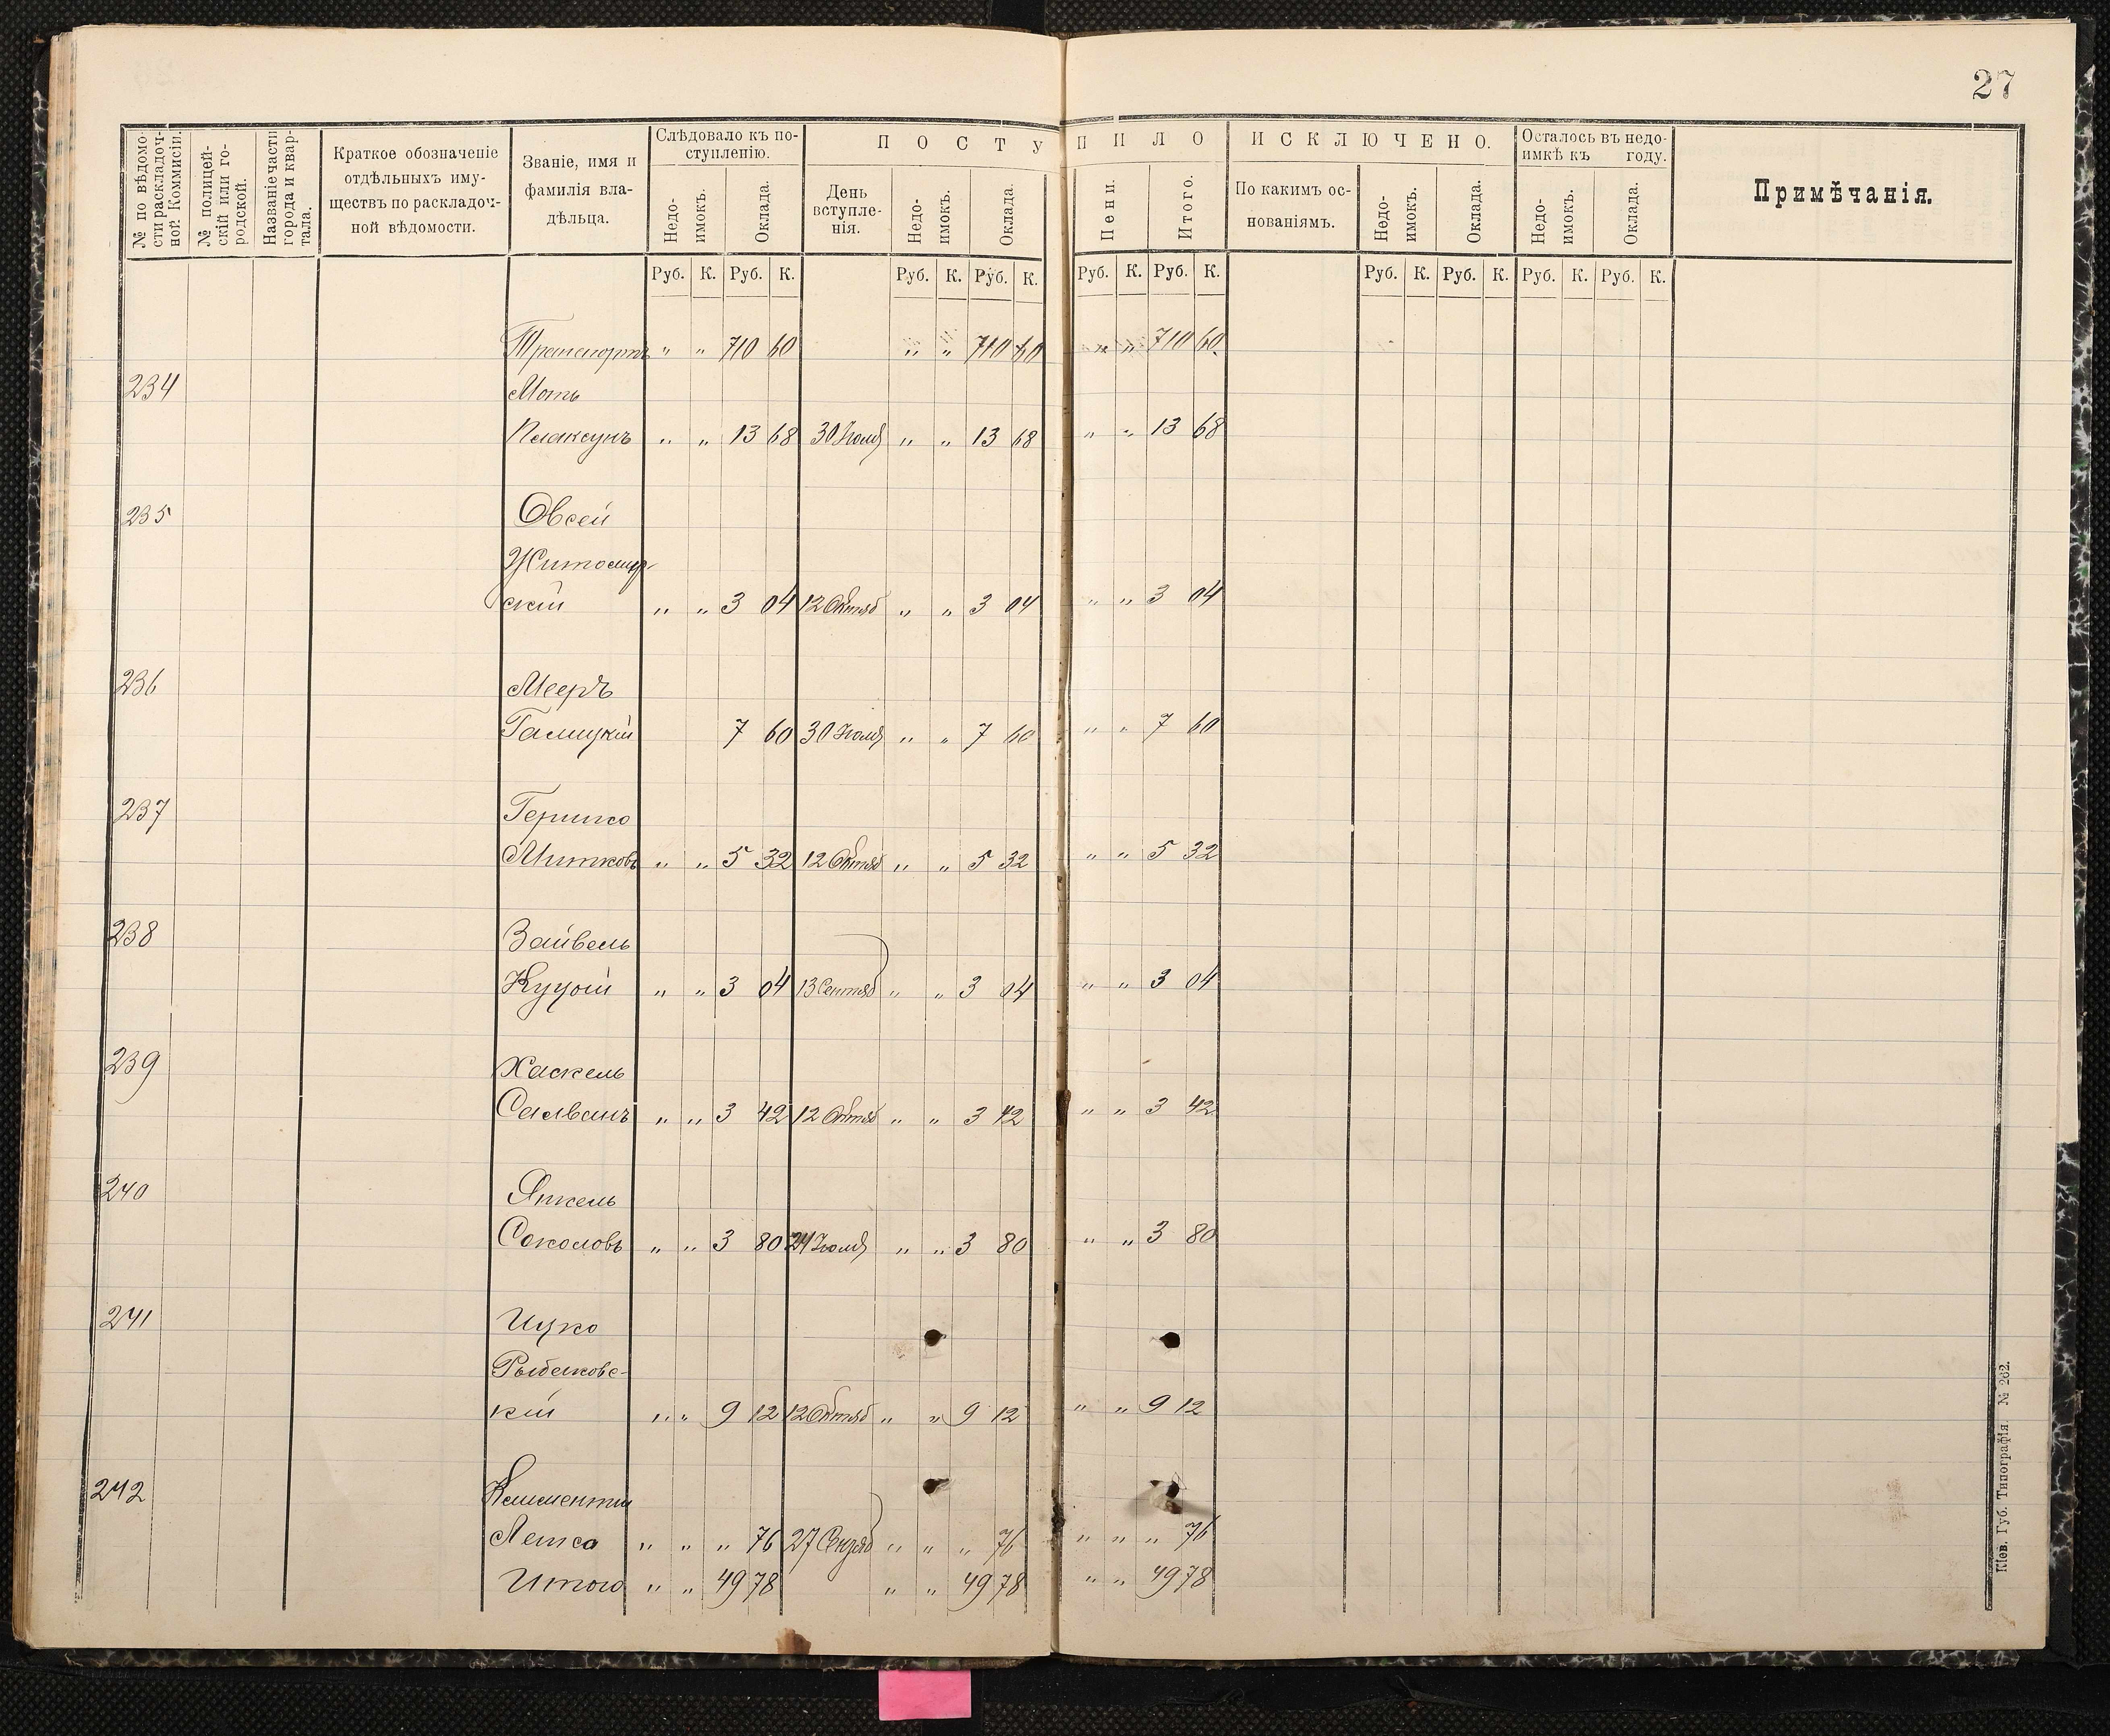 27
№ по вѣдомо-
сти раскладоч-
ной Коммисіи.
№ полицей-
скій или го-
родской.
Названіе части
города и квар-
тала.
Краткое обозначеніе
отдѣльныхъ иму-
ществъ по раскладоч-
ной вѣдомости.
Званіе, имя и
фамилія вла-
дѣльца.
Слѣдовало къ по-
ступленію.
Недо-
имокъ.
Оклада.
ПОСТУПИЛО
День
вступле-
нія.
Недо-
имокъ.
Оклада.
Пени.
Итого.
ИСКЛЮЧЕНО.
По какимъ ос-
нованіямъ.
Недо-
имокъ.
Оклада.
Осталось въ недо-
имкѣ къ году.
Недо-
имокъ.
Оклада.
Примѣчанія.
Руб. К. Руб. К. Руб. К. Руб. К. Руб. К. Руб. К. Руб. К. Руб. К. Руб. К. Руб. К.
Транспортъ " " 710 60 " " 710 60 " " 710 60
234 Моть
Плаксунъ " " 13 68 30 Іюля " " 13 68 " " 13 68
235 Овсей
Житомир-
скій " " 3 04 12 Октяб " " 3 04 " " 3 04
236 Мееръ
Галицкій 7 60 30 Іюля " " 7 60 " " 7 60
237 Гершко
Митковъ " " 5 32 12 Октяб " " 5 32 " " 5 32
238 Зайвель
Куцый " " 3 04 13 Сентяб " " 3 04 " " 3 04
239 Хаскель
Салванъ " " 3 42 12 Октяб " " 3 42 " " 3 42
240 Янкель
Соколовъ " " 3 80 24 Іюля " " 3 80 " " 3 80
241 Ицко
Рыбаковс-
кій " " 9 12 12 Октяб " " 9 12 " " 9 12
242 Климентій
" " " 76 27 " " " 76 " " " 76
Итого " " 49 78 " " 49 78 " " 49 78
Кіев. Губ. Типографія. № 262.